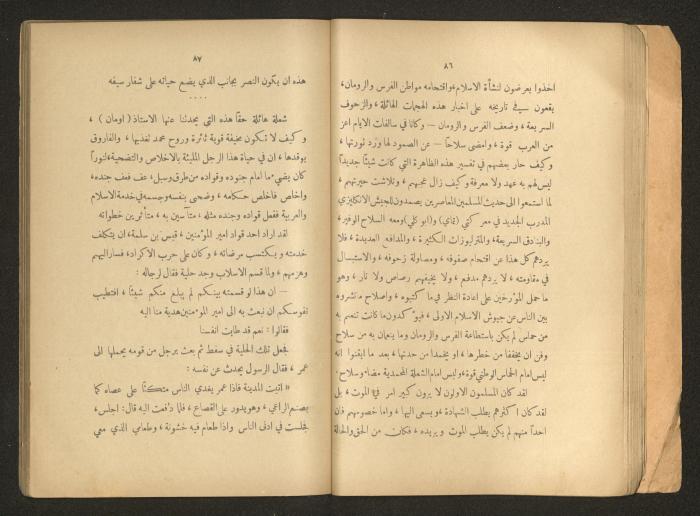 ٨٦
اخذوا يعرضون لنشأة الاسلام واقتحامه مواطن الفرس والرومان،
يقعون في تاريخه على اخبار هذه الهجمات الهائلة، والزحوف
السريعة، وضعف الفرس والرومان — وكانا في سالفات الايام اعز
من العرب قوة، وامضى سلاحاً — عن الصمود لها ورد ثورتها،
وكيف حار بعضهم في تفسير هذه الظاهرة التي كانت شيئاً جديداً
ليس لهم به عهد ولا معرفة وكيف زال عجبهم، وتلاشت حيرتهم،
لما استمعوا الى حديث المسلمين المعاصرين يصمدون للجيش الانكليزي
المدرب الجديد في معركتي (تماي) و(ابو كلي) ومعه السلاح الوفير،
والبنادق السريعة، والمترليوزات الكثيرة، والمدافع العديدة، فلا
يردهم كل هذا عن اقتحام صفوفه، ومصاولة زحوفه، والاستبسال
في مقاومته، لا يردهم مدفع، ولا يخيفهم رصاص ولا نار، وهو
ما حمل المؤرخين على اعادة النظر في ما كتبوه، واصلاح ما نشروه
بين الناس عن جيوش الاسلام الاولى، فيؤكدون ما كانت تنعم به
من حماس لم يكن باستطاعة الفرس والرومان وما ينعمان به من سلاح
وفن ان يخففا من خطرها، او يخمدا من حدتها، بعد ما ايقنوا انه
ليس امام الحماس الوطني قوة، وليس امام الشعلة المحمدية مضاء وسلاح.
لقد كان المسلمون الاولون لا يرون كبير امر في الموت، بل
لقد كان اكثرهم يطلب الشهادة، ويسعى اليها، واما خصومهم فان
احداً منهم لم يكن يطلب الموت ويريده، فكان من الحق والحالة
٨٧
هذه ان يكون النصر بجانب الذي يضع حياته على شفار سيفه
....
شعلة هائلة حقاً هذه التي يحدثنا عنها الاستاذ (اومان)،
وكيف لا تكون مخيفة قوية ثائرة وروح محمد تغذيها، والفاروق
يوقدها، ان في حياة هذا الرجل المليئة بالاخلاص والتضحية، لنوراً
كان يضيء ما امام جنوده وقواده من طرق وسبل، عف فعف جنده،
واخلص فاخلص حكامه، وضحى بنفسه وجسمه في خدمة الاسلام
والعربية ففعل قواده وجنده مثله، متأسين به، متأثرين خطواته
لقد اراد احد قواد امير المؤمنين، قيس بن سلمة، ان يتكلف
خدمته ويكتسب مرضاته، وكان على حرب الاكراد، فسار اليهم
وهزمهم، ولما قسم الاسلاب وجد حلية فقال لرجاله:
— ان هذا لو قسمته بينكم لم يبلغ منكم شيئاً، افتطيب
نفوسكم ان نبعث به الى امير المؤمنين هدية منا اليه
فقالوا: نعم قد طابت انفسنا
فجعل تلك الحلية في سفط ثم بعث برجل من قومه يحملها الى
عمر، فقال الرسول يحدث عن نفسه:
« اتيت المدينة فاذا عمر يغدي الناس متكئاً على عصاه كما
يصنع الراعي، وهو يدور على القصاع، فلما دفعت اليه قال: اجلس،
فجلست في ادنى الناس واذا طعام فيه خشونة، وطعامي الذي معي